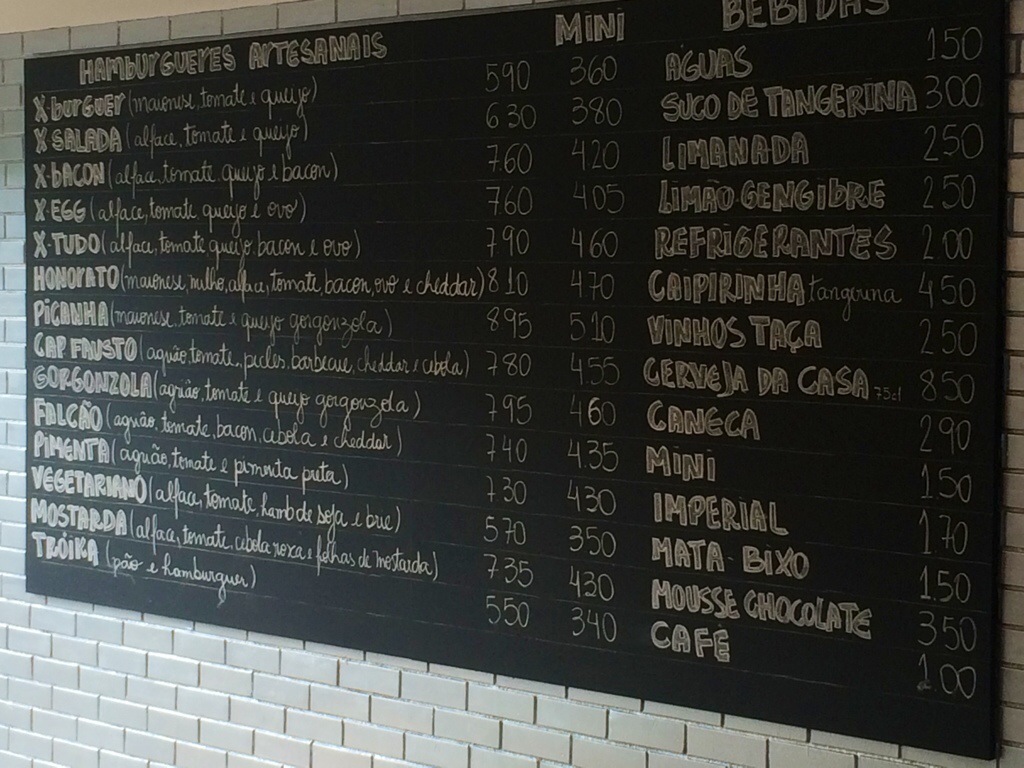 HAMBURGUERES ARTESANAIS MINI BEBIDAS
X BURGUER (maionese, tomate e queijo) 590 360
X SALADA (alface, tomate e queijo) 630 380
X BACON (alface, tomate queijo e bacon) 760 420
X EGG (alface, tomate queijo e ovo) 760 405
X-TUDO (alface, tomate queijo, bacon e ovo) 790 460
HONORATO (maionese, milho, alface, tomate, bacon, ovo e cheddar) 810 470
PICANHA (maionese, tomate e queijo gorgonzola) 895 510
CAP FAUSTO (agrião, tomate, picles, barbecue, cheddar e cebola) 780 455
GORGONZOLA (agrião, tomate e queijo gorgonzola) 795 460
FALCÃO (agrião, tomate, bacon, cebola e cheddar) 740 435
PIMENTA (agrião, tomate e pimenta preta) 730 430
VEGETARIANO (alface, tomate hamb de soja e brie) 570 350
MOSTARDA (alface, tomate, cebola roxa e folhas de mostarda) 735 430
TRÓIKA (pão e hamburguer) 550 340
AGUAS 150
SUCO DE TANGERINA 300
LIMANADA 250
LIMÃO GENGIBRE 250
REFRIGERANTES 200
CAIPIRINHA tangerina 450
VINHOS TAÇA 250
CERVEJA DA CASA 75cl 850
CANECA 290
MINI 150
IMPERIAL 170
MATA-BIXO 150
MOUSSE CHOCOLATE 350
CAFÉ 100